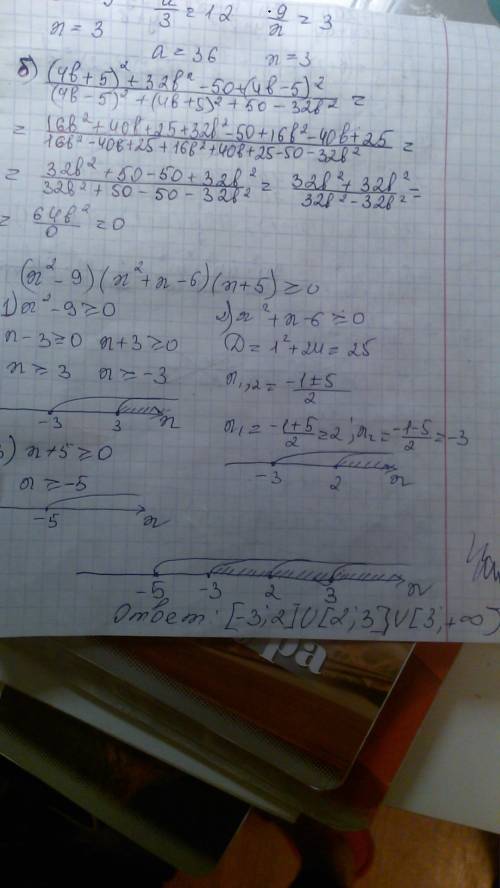 a/3 = 12 9/x = 3
x = 3
a = 36 x = 3
б) ((4b+5)² + 32b² - 50 + (4b-5)²) / ((4b-5)² + (4b+5)² + 50 - 32b²) =
= (16b² + 40b + 25 + 32b² - 50 + 16b² - 40b + 25) / (16b² - 40b + 25 + 16b² + 40b + 25 - 50 - 32b²) =
= (32b² + 50 - 50 + 32b²) / (32b² + 50 - 50 - 32b²) = (32b² + 32b²) / (32b² - 32b²) =
= 64b² / 0 = 0
(x² - 9)(x² + x - 6)(x + 5) ≥ 0
1) x² - 9 ≥ 0
x - 3 ≥ 0 x + 3 ≥ 0
x ≥ 3 x ≥ -3
-3 3 x
2) x² + x - 6 ≥ 0
D = 1² + 24 = 25
x₁,₂ = (-1 ± 5) / 2
x₁ = (-1+5)/2 = 2; x₂ = (-1-5)/2 = -3
-3 2 x
3) x + 5 ≥ 0
x ≥ -5
-5 x
-5 -3 2 3 x
Ответ: [-3; 2] U [2; 3] U [3; +∞)
ра